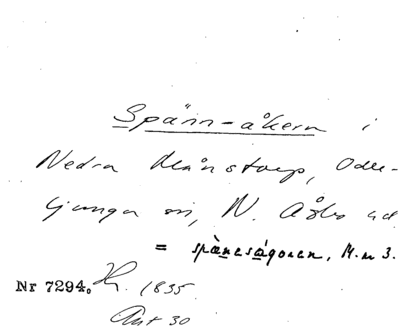 Spänn-åkern i
Nedra Månstorp, Oder-
ljunga sn, N. Åsbo hd
= spànnsågoren, M. m 3.
Nr 7294. 1835
Ant 30